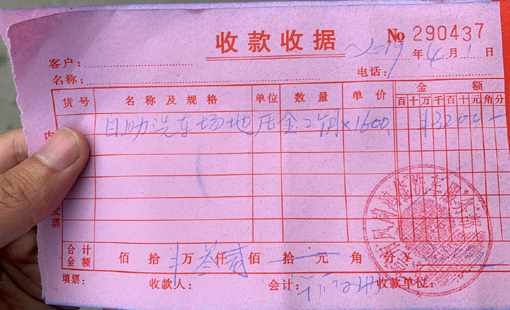 收款收据 № 290437
客户： 2019年4月1日
名称： 电话：
货号 名称及规格 单位 数量 单价 金额
百十万千百十元角分
自助洗车场地压金2个月×1600 ¥3200-
合计金额 佰 拾 万叁仟贰佰 拾 元 角 分 ¥
填票： 收款人： 会计： 收款单位：